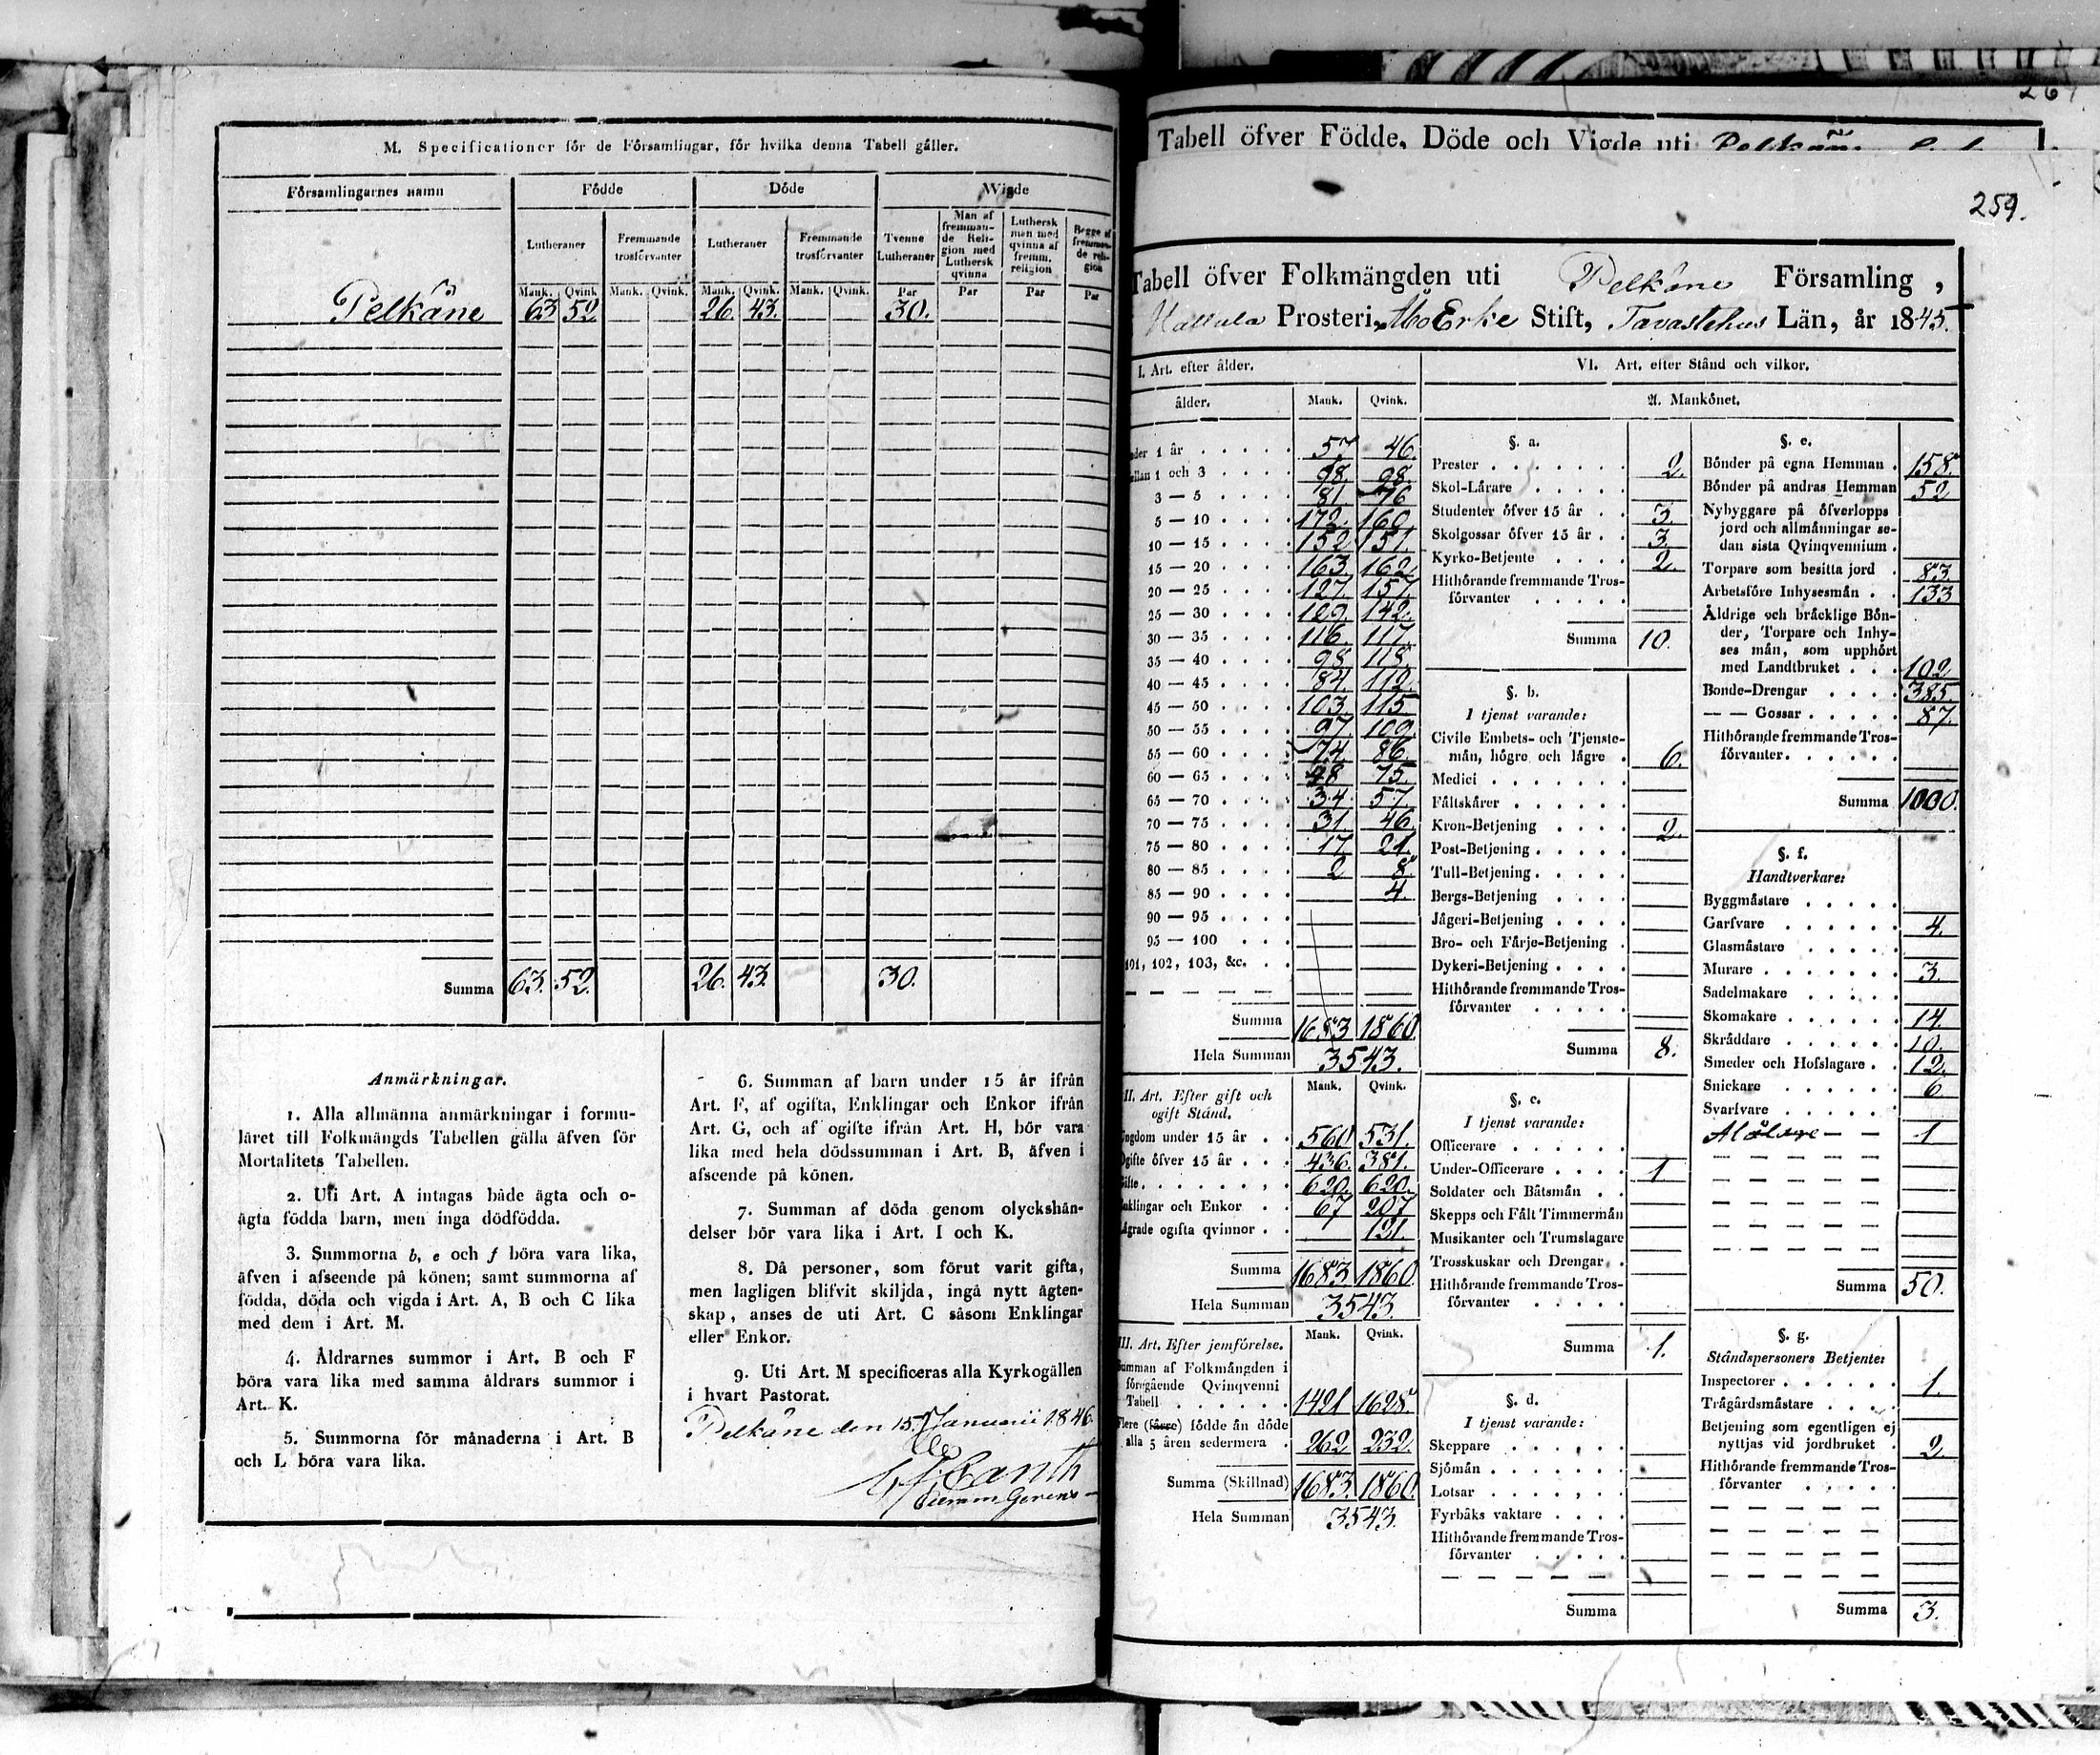 M. Specificationer för de Församlingar, för hvilka denna Tabell gäller.
Församlingarnes namn Födde Döde Wigde
Lutheraner Fremmande trosförvanter Lutheraner Fremmande trosförvanter Tvenne Lutheraner Man af fremmande Religion med Luthersk qvinna Luthersk man med qvinna af fremm. religion Begge af fremmande religion
Mank. Qvink. Mank. Qvink. Mank. Qvink. Mank. Qvink. Par Par Par Par
Pelkäne 63 52 26. 43. 30.
Summa 63. 52. 26. 43. 30.
Anmärkningar.
1. Alla allmänna anmärkningar i formu-
läret till Folkmängds Tabellen gälla äfven för
Mortalitets Tabellen.
2. Uti Art. A intagas både ägta och o-
ägta födda barn, men inga dödfödda.
3. Summorna b, e och f böra vara lika,
äfven i afseende på könen; samt summorna af
födda, döda och vigda i Art. A, B och C lika
med dem i Art. M.
4. Åldrarnes summor i Art. B och F
böra vara lika med samma åldrars summor i
Art. K.
5. Summorna för månaderna i Art. B
och L böra vara lika.
6. Summan af barn under 15 år ifrån
Art. F, af ogifta, Enklingar och Enkor ifrån
Art. G, och af ogifte ifrån Art. H, bör vara
lika med hela dödssumman i Art. B, äfven i
afseende på könen.
7. Summan af döda genom olyckshän-
delser bör vara lika i Art. I och K.
8. Då personer, som förut varit gifta,
men lagligen blifvit skiljda, ingå nytt ägten-
skap, anses de uti Art. C såsom Enklingar
eller Enkor.
9. Uti Art. M specificeras alla Kyrkogällen
i hvart Pastorat.
Pelkäne den 15. Januarii 1846.
Tabell öfver Födde, Döde och Vigde uti Pelkäne
259.
Tabell öfver Folkmängden uti Pelkäne Församling,
Prosteri, Åbo Erke Stift, Tavastehus Län, år 1845.
I. Art. efter ålder.
ålder. Mank. Qvink.
nder 1 år 57 46.
ellan 1 och 3 98. 98.
3 — 5 81. 76
5 — 10 172. 160.
10 — 15 152 151.
15 — 20 163. 162
20 — 25 127. 157.
25 — 30 129. 142.
30 — 35 116. 117.
35 — 40 98 118.
40 — 45 84. 112.
45 — 50 103. 115
50 — 55 97. 109.
55 — 60 74 86.
60 — 65 48 75.
65 — 70 34. 57.
70 — 75 31. 46.
75 — 80 17 21.
80 — 85 2 8.
85 — 90 4.
90 — 95
95 — 100
101, 102, 103, &c.
Summa 1683 1860.
Hela Summan 3543.
II. Art. Efter gift och ogift Stånd. Mank. Qvink.
ngdom under 15 år 560 531.
Ogifte öfver 15 år 436. 381.
Gifte 620. 620.
nklingar och Enkor 67 207
ägrade ogifta qvinnor 121.
Summa 1683. 1860.
Hela Summan 3543.
III. Art. Efter jemförelse. Mank. Qvink.
Summan af Folkmängden i
föregående Qvinqvenni
Tabell 1421 1628.
Flere (färre) födde än döde
alla 5 åren sedermera 262 232.
Summa (Skillnad) 1683. 1860.
Hela Summan 3543.
VI. Art. efter Stånd och vilkor.
A. Mankönet.
§. a.
Prester 2.
Skol-Lärare
Studenter öfver 15 år 3.
Skolgossar öfver 15 år 3.
Kyrko-Betjente 2.
Hithörande fremmande Tros-
förvanter
Summa 10.
§. b.
I tjenst varande:
Civile Embets- och Tjenste-
män, högre och lägre 6.
Medici
Fältskärer
Kron-Betjening 2.
Post-Betjening
Tull-Betjening
Bergs-Betjening
Jägeri-Betjening
Bro- och Färje-Betjening
Dykeri-Betjening
Hithörande fremmande Tros-
förvanter
Summa 8.
§. c.
I tjenst varande:
Officerare
Under-Officerare 1
Soldater och Båtsmän
Skepps och Fält Timmermän
Musikanter och Trumslagare
Trosskuskar och Drengar
Hithörande fremmande Tros-
förvanter
Summa 1.
§. d.
I tjenst varande:
Skeppare
Sjömän
Lotsar
Fyrbåks vaktare
Hithörande fremmande Tros-
förvanter
Summa
§. e.
Bönder på egna Hemman 158.
Bönder på andras Hemman 52
Nybyggare på öfverlopps
jord och allmänningar se-
dan sista Qvinqvennium
Torpare som besitta jord 83.
Arbetsföre Inhysesmän 133
Åldrige och bräcklige Bön-
der, Torpare och Inhy-
ses män, som upphört
med Landtbruket 102
Bonde-Drengar 385.
— — Gossar 87.
Hithörande fremmande Tros-
förvanter
Summa 1000.
§. f.
Handtverkare:
Byggmästare
Garfvare 4.
Glasmästare
Murare 3.
Sadelmakare
Skomakare 14.
Skräddare 10.
Smeder och Hofslagare 12.
Snickare 6
Svarfvare
Målare 1
Summa 50.
§. g.
Ståndspersoners Betjente:
Inspectorer 1.
Trägårdsmästare
Betjening som egentligen ej
nyttjas vid jordbruket 2.
Hithörande fremmande Tros-
förvanter
Summa 3.